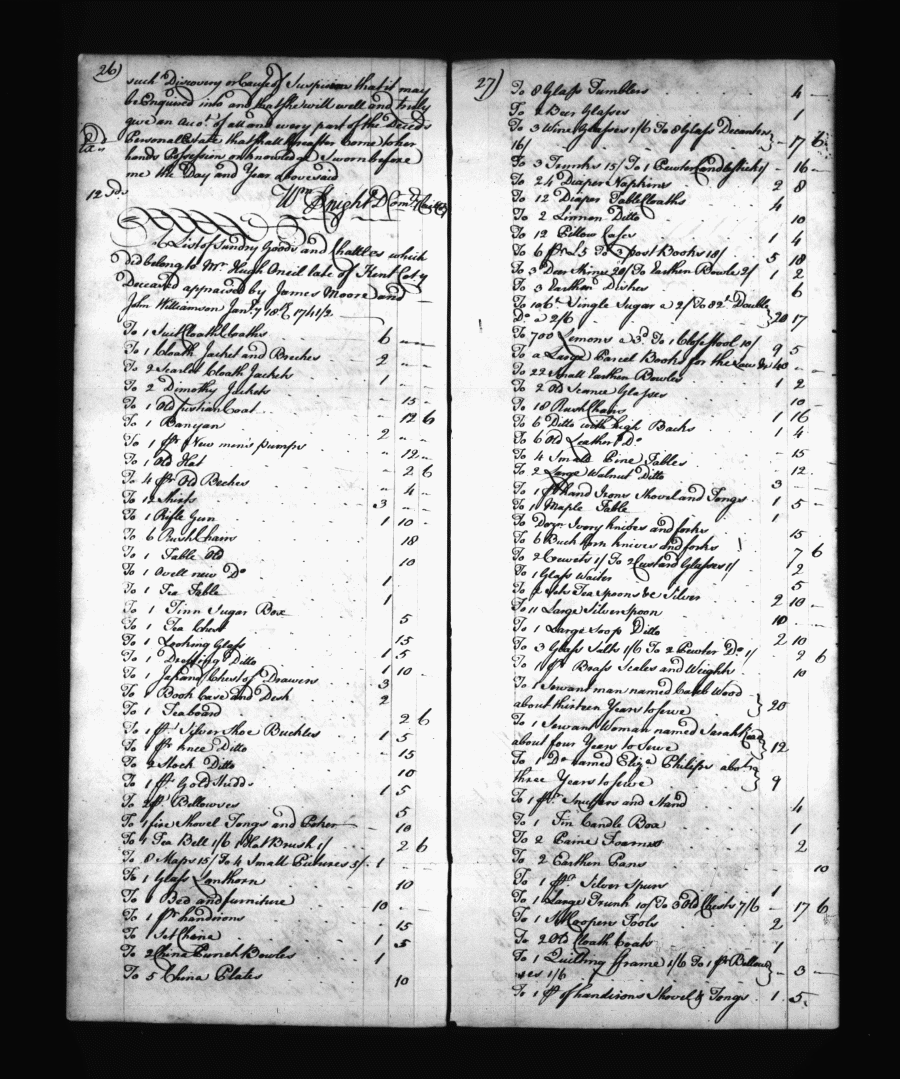 26)
such Discovery or Cause of Suspicion that it may
be Enquired into and that she will well and truly
give an Acco.t of all and every part of the Deced's
Personal Estate that shall hereafter Come to her
hands Possession or knowledge Sworn before
me the Day and Year abovesaid
12 Sds
Wm Knight D Com.ry
A List of Sundry Goods and Chattles which
did belong to Mr. Hugh Oneil late of Kent Coty
Deceased appraised by James Moore and
John Williamson Jan.y 18th 1741/2
To 1 Suit Cloath Cloaths 6 " "
To 1 Cloath Jacket and Breches 2 " "
To 2 Scarlet Cloath Jackets 1 " "
To 2 Dimothy Jackets " 15 "
To 1 Old fustian Coat " 12 6
To 1 Banyan 2 " "
To 1 pr New men's pumps " 12 "
To 1 Old Hat " 2 6
To 4 pr Old Breches " 4 "
To 12 Shirts 3 " "
To 1 Rifle Gun 1 10 "
To 6 Rush Chairs 18
To 1 Table Old 10
To 1 Ovell new Do 1
To 1 Tea Table 1
To 1 Tinn Sugar Box
To 1 Tea Chest 5
To 1 Looking Glass 15
To 1 Dressing Ditto 1 5
To 1 Japan Chest of Drawers 1 10
To 1 Book Case and Desk 3
To 1 Teaboard 2
To 1 pr Silver Shoe Buckles 2 6
To 1 pr knee Ditto 1 5
To 2 Stock Ditto 15
To 1 pr Gold Studds 10
To 2 pr Bellowses 1 5
To 1 fire Shovel Tongs and Poker 5
To 1 Tea Bell 1/6 1 Hat Brush 1/ 10
To 8 Maps 15/ To 4 Small Pictures 5/ 2 6
To 1 Glass Lanthorn 1
To 1 Bed and furniture 10
To 1 pr handirons 10 "
To 1 Set China 15
To 2 China Punch Bowles 1 5
To 5 China Plates 1
10
27)
To 8 Glass Tumblers 4 —
To 2 Beer Glasses 1
To 3 Wine Glasses 1/6 To 8 Glass Decanters
16/ } — 17 6
To 3 Trunks 15/ To 1 Pewter Candlestick 1/ — 16 —
To 24 Diaper Napkins 2 8
To 12 Diaper Table Cloaths 4
To 2 Linnon Ditto 10
To 12 Pillow Cases 1 4
To 6 pr £5 To 3 post Books 18/ 5 18
To 3 Deer Skins 20/ To Earthen Bowle 2/ 1 2
To 3 Earthen Dishes 6
To 196 lt Single Sugar a 2/ To 82 lt Double
Do a 2/6 } 20 17
To 700 Lemons a 3d To 1 Close Stool 10/ 9 5
To a Large Parcel Books for the Law &c 40 " —
To 22 Small Earthen Bowles 1 2
To 2 Old Sconce Glasses 10 —
To 18 Rush Chairs 1 16
To 6 Ditto with high Backs 1 4
To 6 Old Leathern Do 15
To 4 Small Pine Tables 12
To 2 Large Walnut Ditto 3 —
To 1 pr Hand Irons Shovel and Tongs 1 5
To 1 Maple Table 1
To Dozn Ivory knives and forks 15
To 6 Buck horn knives and forks 7 6
To 2 Cruvets 1/ To 2 Custard Glasses 1/ 2
To 1 Glass Waiter 5
To 1 Sets Tea Spoons &c Silver 2 10 —
To 11 Large Silver Spoon 10 —
To 1 Large Soop Ditto 2 10
To 3 Glass Salts 1/6 To 2 Pewter Do 1/ 2 6
To 1 pr Brass Scales and Weights 10
To 1 Servant man named Caleb Wood
about thirteen Years to serve } 20
To 1 Servant Woman named Sarah Read
about four Years to Serve } 12
To 1 Do named Eliza Philips about
three Years to serve } 9
To 1 pr Snuffers and Stand 4
To 1 Tin Candle Box 1
To 2 Paine Foarmes 2
To 2 Earthen Pans 10
To 1 pr Silver Spurs 1
To 1 Large Trunk 10/ To 3 Old Chests 7/6 — 17 6
To 1 Sett Coopers Tools 2
To 2 Old Cloath Coats 1
To 1 Quilting frame 1/6 To 1 pr Bellow
ses 1/6 } — 3 —
To 1 pr of handirons Shovel & Tongs 1 5